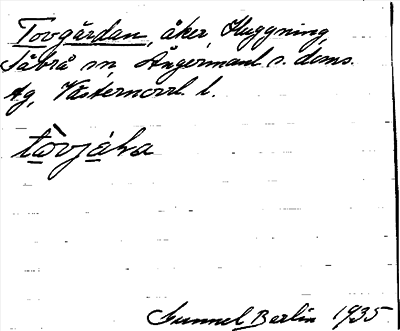 Tovgårdan, åker, Huggning,
Säbrå sn, Ångermanl. s. doms.
Ag, Västernorrl. l.
tòvjáḷa
Gunnel Berlin 1935